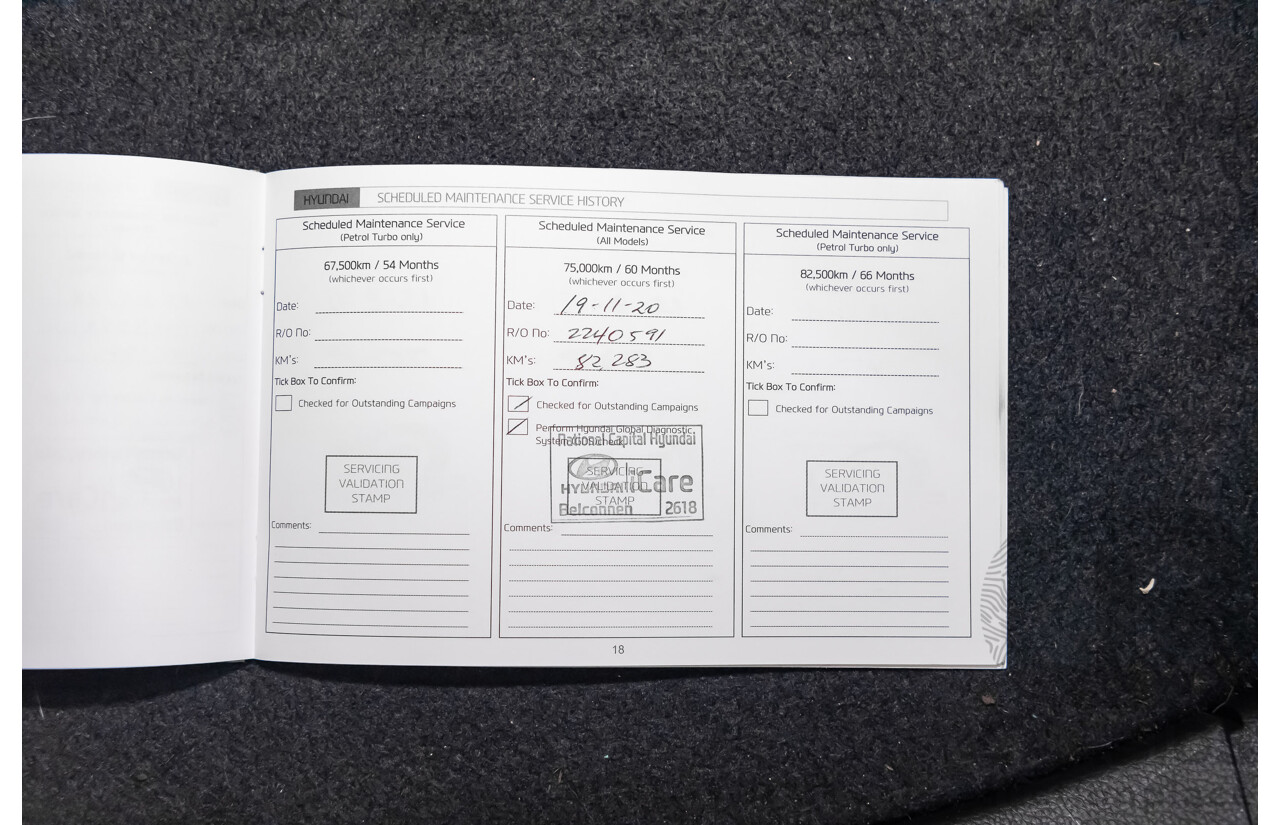 HYUNDAI SCHEDULED MAINTENANCE SERVICE HISTORY
Scheduled Maintenance Service
(Petrol Turbo only)
67,500km / 54 Months
(whichever occurs first)
Date:
R/O No:
KM's:
Tick Box To Confirm:
Checked for Outstanding Campaigns
SERVICING
VALIDATION
STAMP
Comments:
Scheduled Maintenance Service
(All Models)
75,000km / 60 Months
(whichever occurs first)
Date: 19-11-20
R/O No: 2240591
KM's: 82 283
Tick Box To Confirm:
Checked for Outstanding Campaigns
Perform Hyundai Global Diagnostic
System
National Capital Hyundai
SERVICING
VALIDATION
STAMP
HYUNDAI iCare
Belconnen 2618
Comments:
Scheduled Maintenance Service
(Petrol Turbo only)
82,500km / 66 Months
(whichever occurs first)
Date:
R/O No:
KM's:
Tick Box To Confirm:
Checked for Outstanding Campaigns
SERVICING
VALIDATION
STAMP
Comments:
18